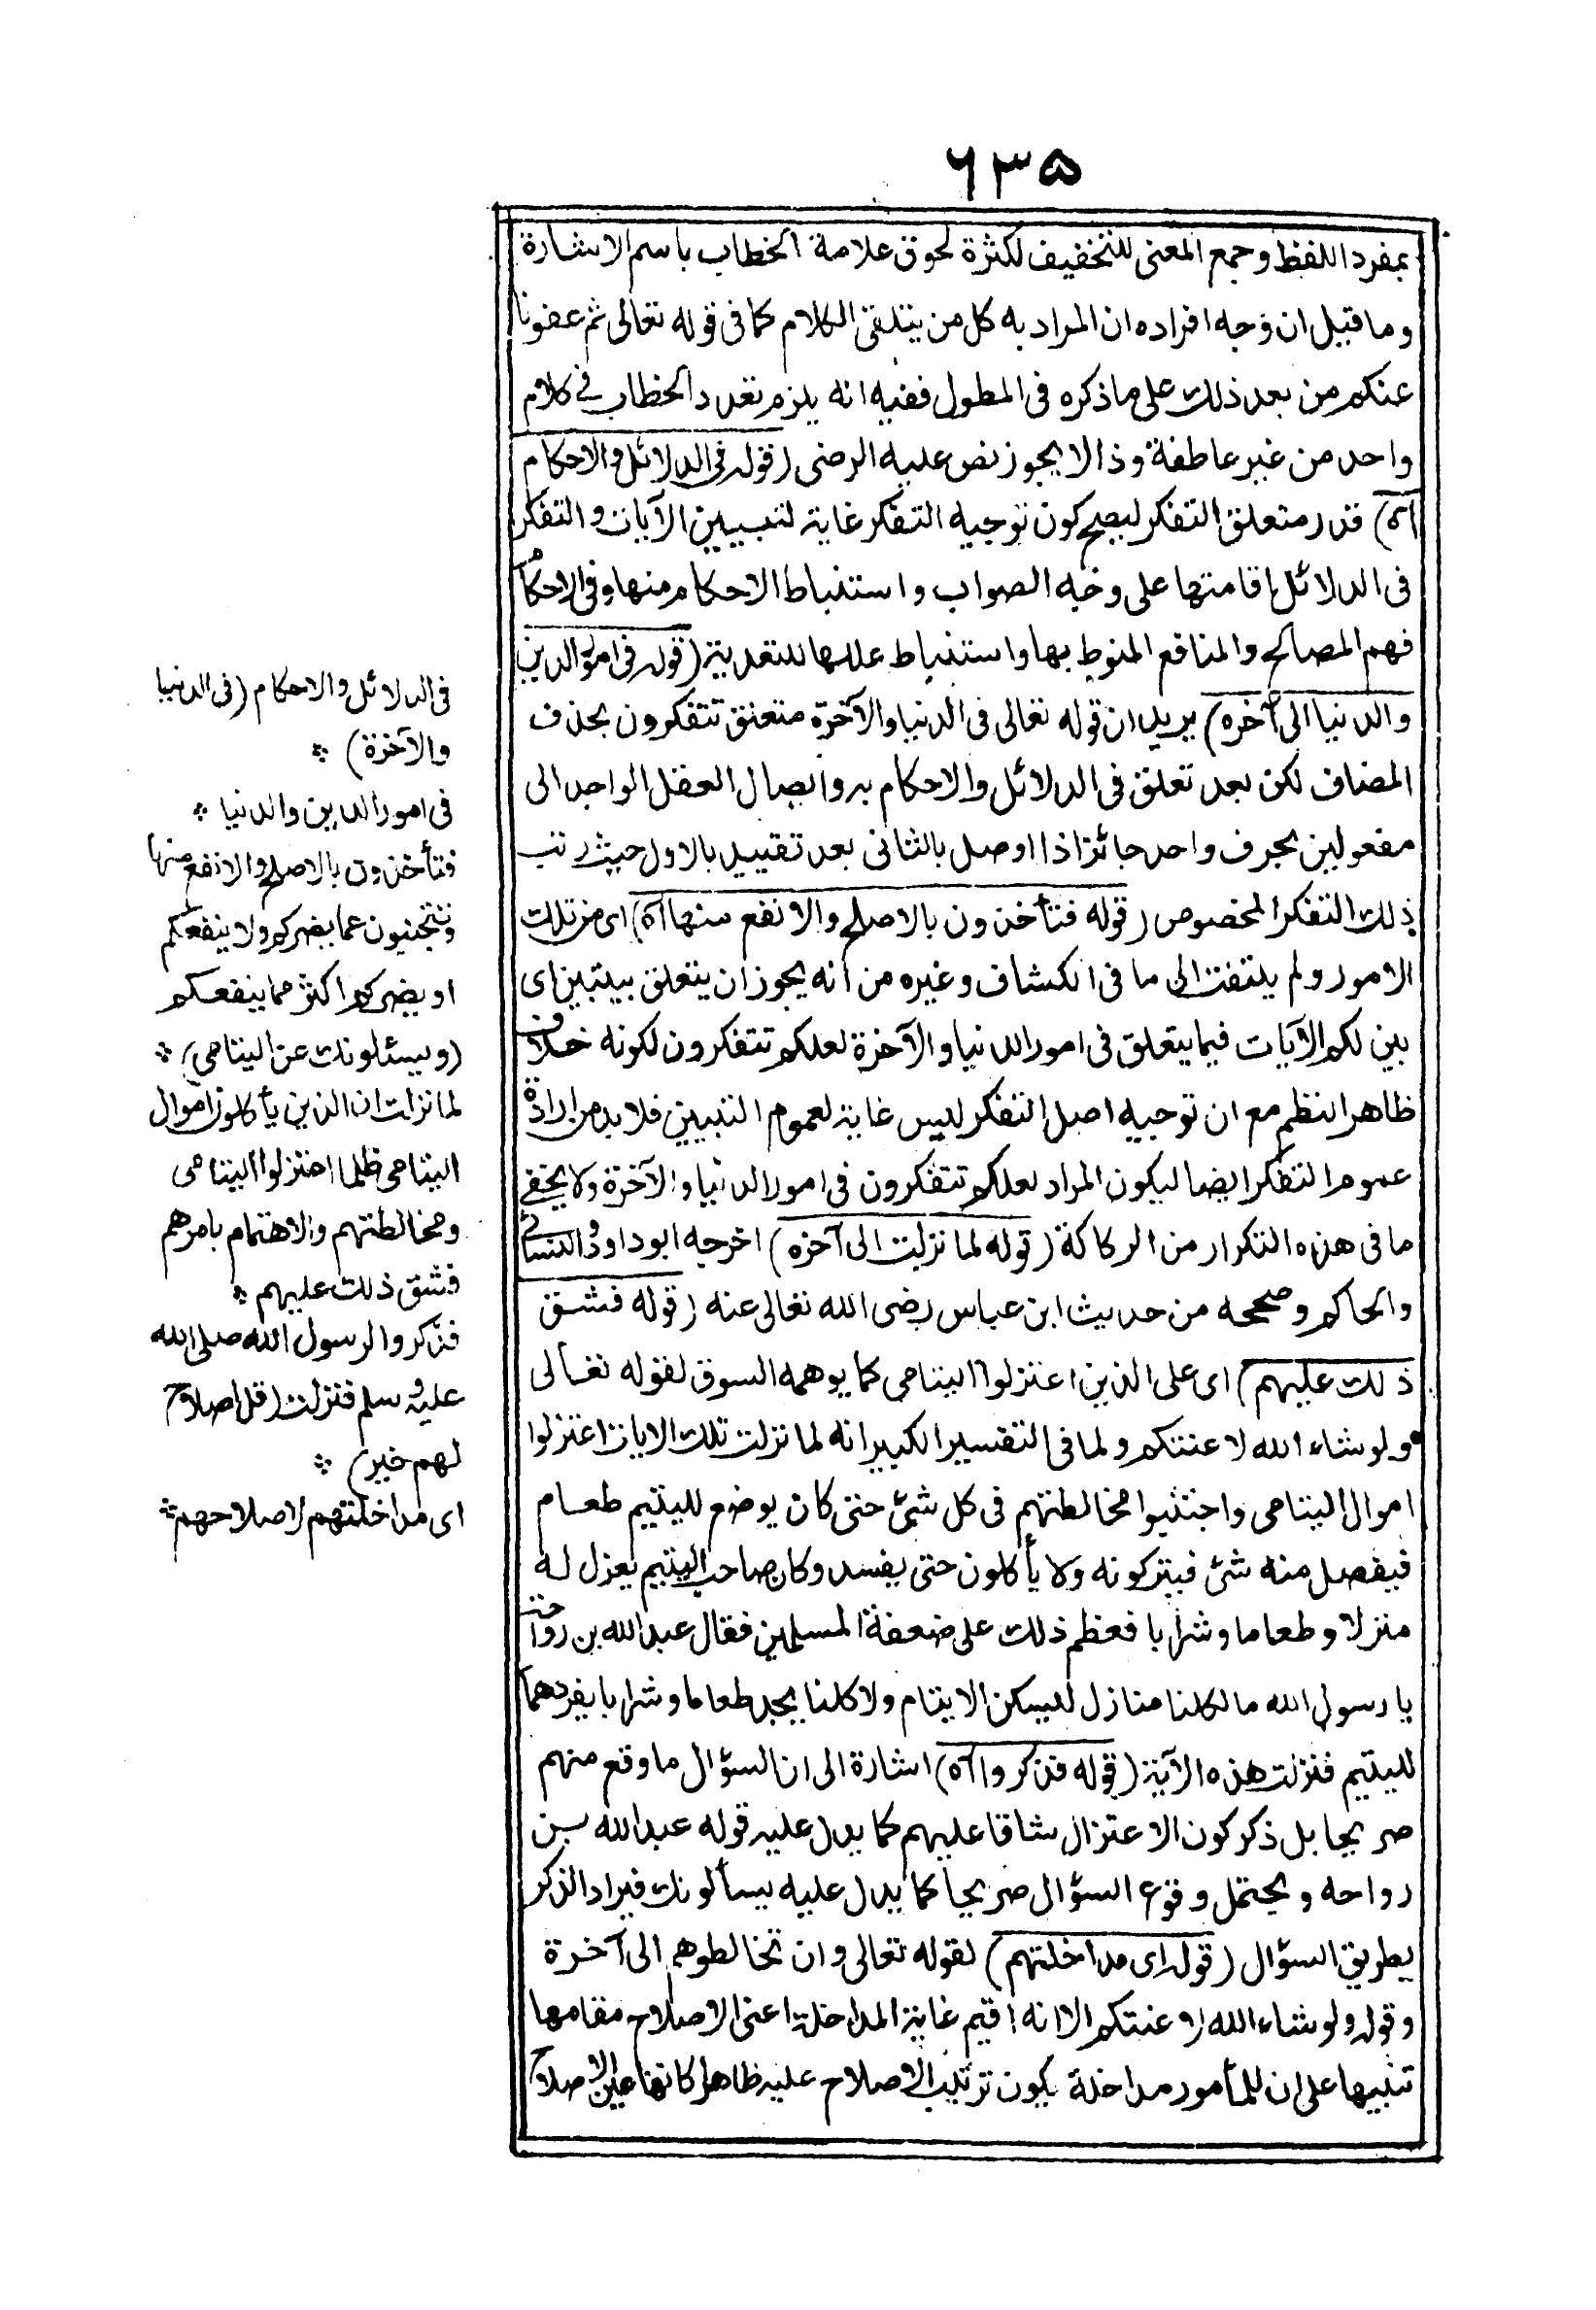 ٦٣٥
بمفرد اللفظ وجمع المعنى للتخفيف لكثرة لحوق علامة الخطاب باسم الاشارة
وما قيل ان وجه افراده ان المراد به كل من يتلقى الكلام كما فى قوله تعالى ثم عفونا
عنكم من بعد ذلك على ما ذكره فى المطول ففيه انه يلزم تعدد الخطاب فى كلام
واحد من غير عاطفة وذا لا يجوز نص عليه الرضى (قوله فى الدلائل والاحكام
آه) قدر متعلق التفكر ليصح كون توجيه التفكر غاية لتبيين الآيات والتفكر
فى الدلائل اقامتها على وجه الصواب واستنباط الاحكام منها وفى الاحكام
فهم المصالح والمنافع المنوط بها واستنباط عللها للتعدية (قوله فى امور الدين
والدنيا الى آخره) يريد ان قوله تعالى فى الدنيا والآخرة متعلق تتفكرون بحذف
المضاف لكن بعد تعلق فى الدلائل والاحكام به وايصال الفعل الواحد الى
مفعولين بحرف واحد جائز اذا اوصل بالثانى بعد تقييد بالاول حيث رتب
ذلك التفكر المخصوص (قوله فتأخذون بالاصلح والانفع منها آه) اى من تلك
الامور ولم يلتفت الى ما فى الكشاف وغيره من انه يجوز ان يتعلق بيتبين اى
بين لكم الآيات فيما يتعلق فى امور الدنيا والآخرة لعلكم تتفكرون لكونه خلاف
ظاهر النظم مع ان توجيه اصل التفكر ليس غاية لعموم التبيين فلا بد من ارادة
عموم التفكر ايضا ليكون المراد لعلكم تتفكرون فى امور الدنيا والآخرة ولا يخفى
ما فى هذه التكرار من الركاكة (قوله لما نزلت الى آخره) اخرجه ابو داود والنسائى
والحاكم وصححه من حديث ابن عباس رضى الله تعالى عنه (قوله فشق
ذلك عليهم) اى على الذين اعتزلوا اليتامى كما يوهمه السوق لقوله تعالى
ولو شاء الله لاعنتكم ولما فى التفسير الكبير انه لما نزلت تلك الايات اعتزلوا
اموال اليتامى واجتنبوا مخالطتهم فى كل شئ حتى كان يوضع لليتيم طعام
فيفضل منه شئ فيتركونه ولا يأكلون حتى يفسد وكان صاحب اليتيم يعزل له
منزلا وطعاما وشرابا فعظم ذلك على ضعفة المسلمين فقال عبد الله بن رواحة
يا رسول الله ما لكلنا منازل لليسكن الايتام ولا كلنا يجد طعاما وشرابا يفردهما
لليتيم فنزلت هذه الآية (قوله فذكروا آه) اشارة الى ان السؤال ما وقع منهم
صريحا بل ذكر كون الاعتزال شاقا عليهم كما يدل عليه قوله عبد الله بن
رواحه ويحتمل وقوع السؤال صريحا كما يدل عليه يسألونك فيراد الذكر
بطريق السؤال (قوله اى مداخلتهم) لقوله تعالى وان تخالطوهم الى آخرة
وقوله ولو شاء الله لاعنتكم الا انه اقيم غاية المداخلة اعنى الاصلاح مقامها
تنبيها على ان المأمور مداخلة يكون ترتيب الاصلاح عليه ظاهرا كانها عين الاصلاح
فى الدلائل والاحكام (فى الدنيا
والآخرة) ※
فى امور الدين والدنيا ※
فتأخذون بالاصلح والانفع منها
وتتجنبون عما يضركم ولا ينفعكم
او يضركم اكثر مما ينفعكم
(ويسئلونك عن اليتامى) ※
لما نزلت ان الذين يأكلون اموال
اليتامى ظلما اعتزلوا اليتامى
ومخالطتهم والاهتمام بامرهم
فشق ذلك عليهم ※
فذكروا لرسول الله صلى الله
عليه وسلم فنزلت (قل اصلاح
لهم خير) ※
اى مداخلتهم لاصلاحهم ※